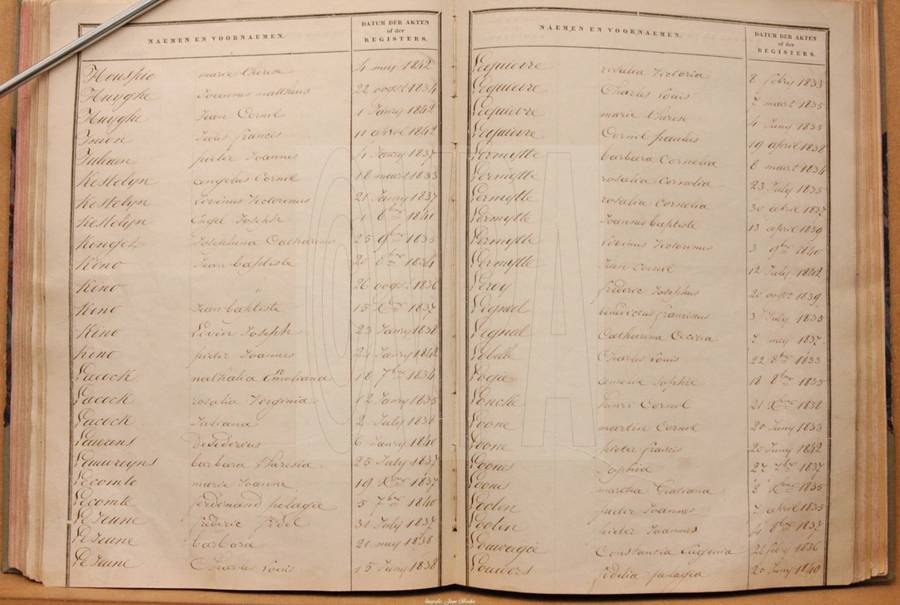 NAEMEN EN VOORNAEMEN. DATUM DER AKTEN of der REGISTERS.
Houspie marie Therese 4 mey 1842
Huyghe Joannes mattheus 22 oogst 1834
Huyghe Jean Cornel 1 Janry 1842
Imion Louis frances 11 april 1842
Juliaen pieter Joannes 4 Janry 1837
Kestelyn angelus Cornel 18 maart 1833
Kestelyn Livinus Victorinus 21 Janry 1837
Kestelyn Engel Joseph 1 1841
Josephina Catharina 25 9bre 1833
Keno Jean baptiste 1834
Keno 26 oogst 1836
Keno Jean baptiste 15 Xbre 1837
Keno Livin Joseph 23 Janry 1838
Keno pieter Joannes 24 Janry 1842
Lacock nathalia Emeliana 18 7bre 1834
Lacock rosalia Verginia 12 Janry 1835
Lacock Juliana 2 July 1838
Lauwens Desiderius 6 Janry 1840
Lauwereyns barbara Theresia 25 July 1837
Lecomte marie Joanne 19 Xbre 1837
Lecomte ferdinand pelagie 5 7bre 1840
LeJeune frederic fidel 31 July 1837
LeJeune barbara 21 mey 1838
LeJeune Charles Louis 15 Juny 1838
NAEMEN EN VOORNAEMEN. DATUM DER AKTEN of der REGISTERS.
Lequievre rosalia Victoria 8 febry 1833
Lequievre Charles Louis 7 maart 1835
Lequievre marie Therese 4 Juny 1835
Lequievre Cornil 19 april 1838
Lermytte barbara Cornelia 8 maart 1834
Lermytte rosalia Cornelia 23 July 1835
Lermytte rosalia Cornelia 30 april 1837
Lermytte Joannes baptiste 13 april 1839
Lermytte Livinus Victorinus 3 9bre 1840
Lermytte Jean Cornel 12 July 1842
Leroy frederic Josephus 20 oogst 1839
benedictus franciscus 3 July 1835
Catharina Cecilia 7 mey 1837
Charles Louis 22 8bre 1833
Sophie 18 8bre 1835
henri Cornel 21 Xbre 1838
Loone martin Cornel 20 Juny 1833
Loone pieter frances 20 Juny 1842
Loones Sophia 27 7bre 1837
Loones martha Tratiana 2 Xbre 1835
Lootin pieter Joannes 7 april 1835
Lootin pieter Joannes 4 9bre 1837
Louwagie Constantia Eugenia 1836
Louwers fidelia pelagia 20 Juny 1840